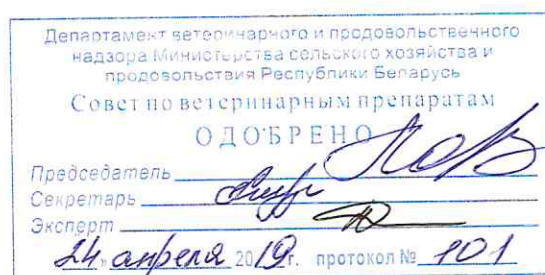 Департамент ветеринарного и продовольственного
надзора Министерства сельского хозяйства и
продовольствия Республики Беларусь
Совет по ветеринарным препаратам
ОДОБРЕНО
Председатель
Секретарь
Эксперт
24 апреля 2019г. протокол № 101